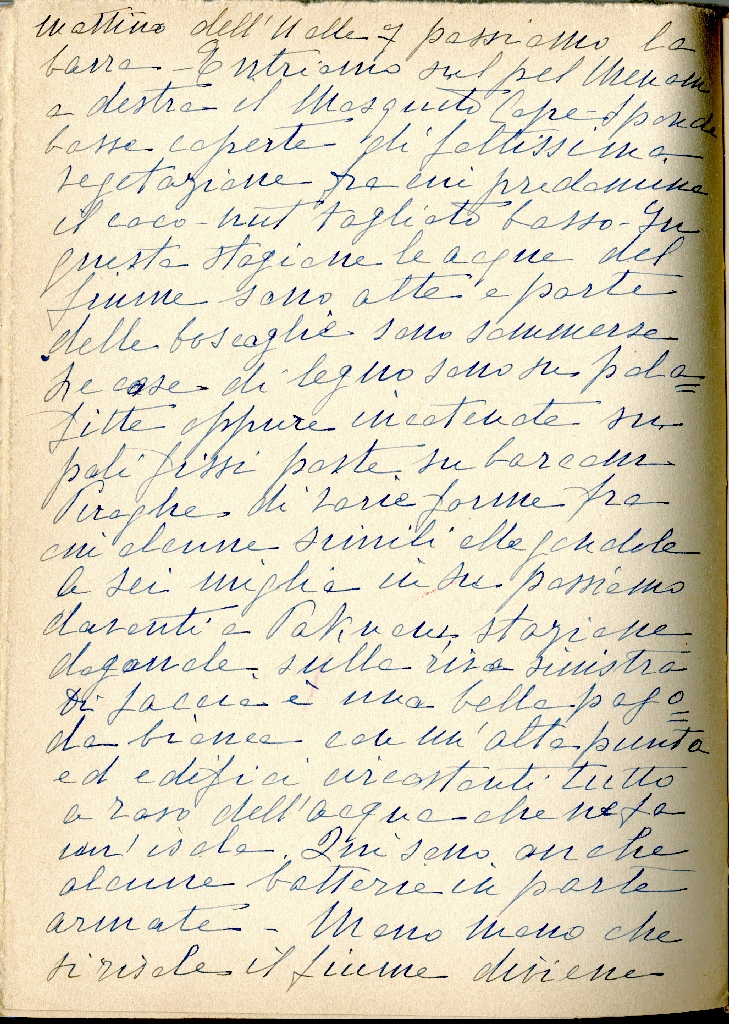 mattino dell'11 alle 7 passiamo la
barra - Entriamo sul pel Menam
a destra il Mosquito Cape - Sponde
basse coperte di foltissima
vegetazione fra cui predomina
il coco-nut tagliato basso - In
questa stagione le acque del
fiume sono alte e parte
delle boscaglie sono sommerse
Le case di legno sono su pala=
fitte oppure incatenate su
pali fissi poste su barconi
Piroghe di varie forme fra
cui alcune simili alle gondole
A sei miglia in su passiamo
davanti a Paknam stazione
doganale sulla riva sinistra
Di faccia è una bella pago=
da bianca con un'alta punta
ed edifici circostanti tutto
a raso dell'acqua che ne fa
un'isola. Qui sono anche
alcune batterie in parte
armate - Mano mano che
si risale il fiume diviene